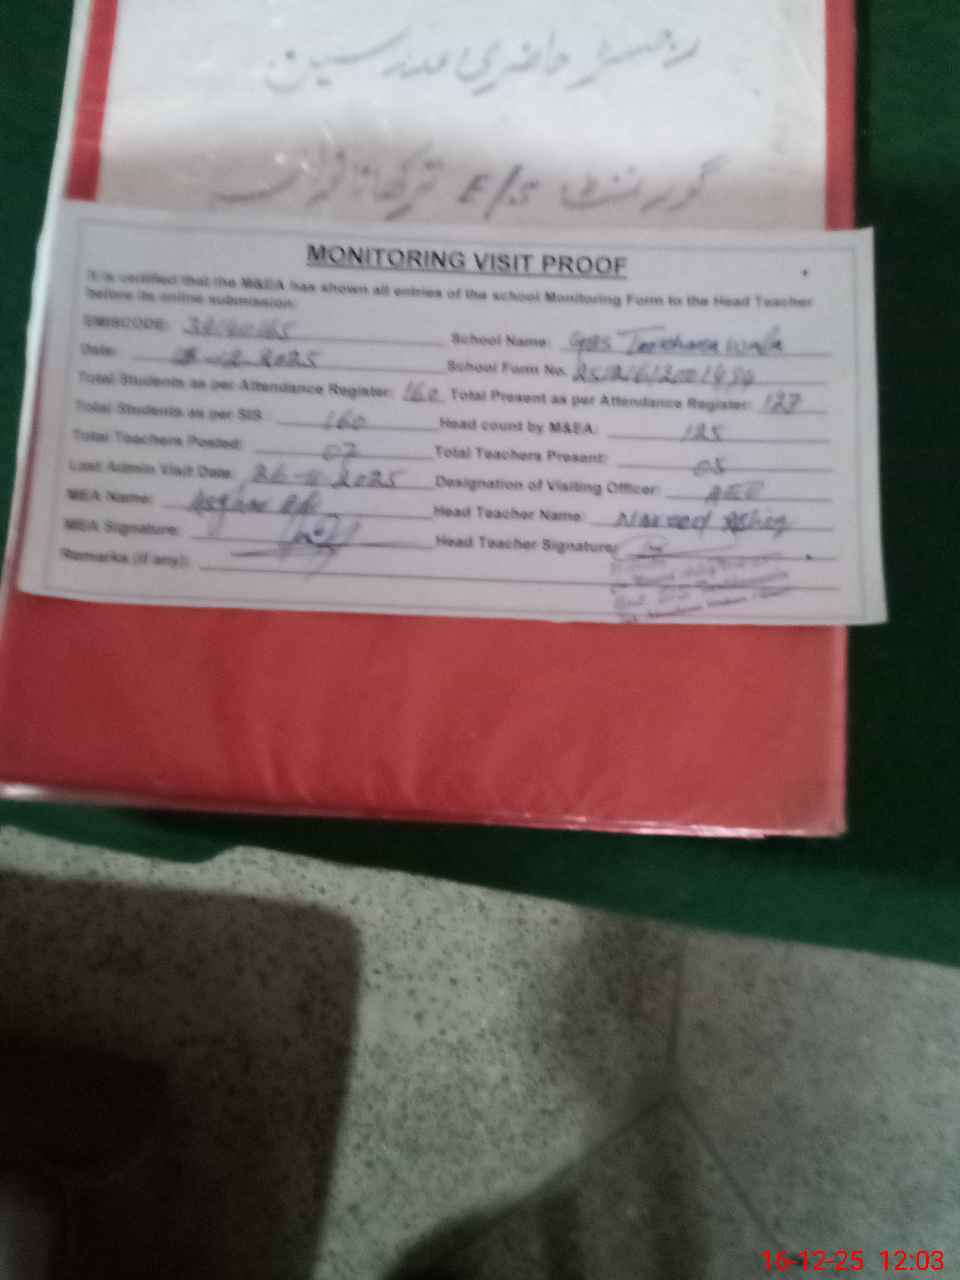 رجسٹر حاضری مدرسین
گورنمنٹ E/S ترکھانانوالہ
MONITORING VISIT PROOF
It is certified that the M&EA has shown all entries of the school Monitoring Form to the Head Teacher
before its online submission:
EMISCODE: School Name: GPS
Date: -12-2025 School Form No.
Total Students as per Attendance Register: 160 Total Present as per Attendance Register: 127
Total Students as per SIS: 160 Head count by M&EA: 125
Total Teachers Posted: 07 Total Teachers Present: 05
Last Admin Visit Date: 26-11-2025 Designation of Visiting Officer: AEO
MEA Name: Asghar Head Teacher Name:
MEA Signature: Head Teacher Signature:
Remarks (if any):
16-12-25 12:03